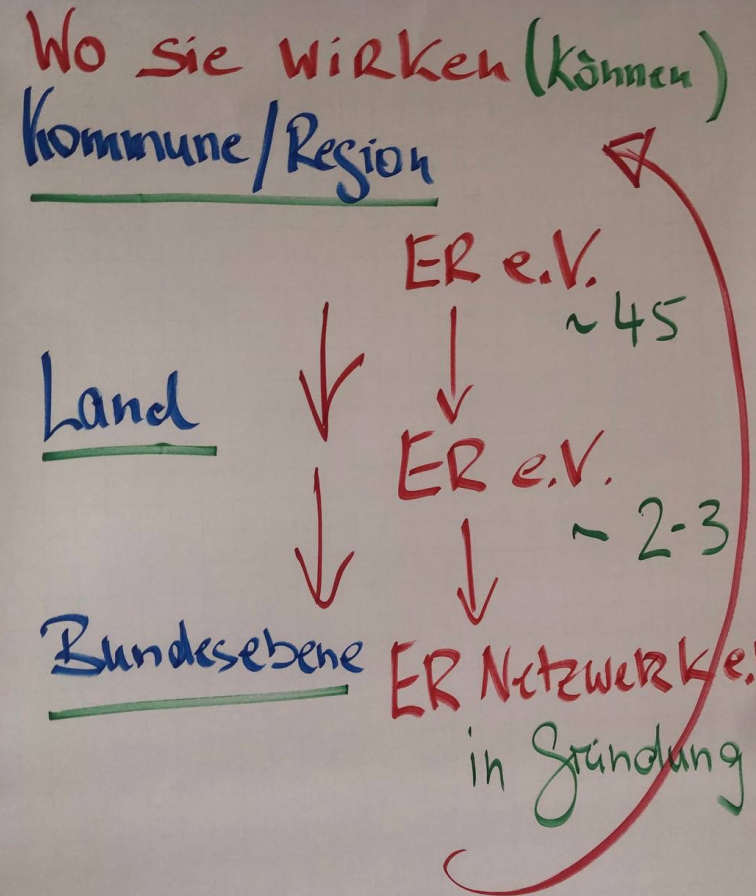 Wo sie wirken (können)
Kommune/Region
ER e.V.
~ 45
Land
ER e.V.
~ 2-3
Bundesebene ER Netzwerk e.
in Gründung